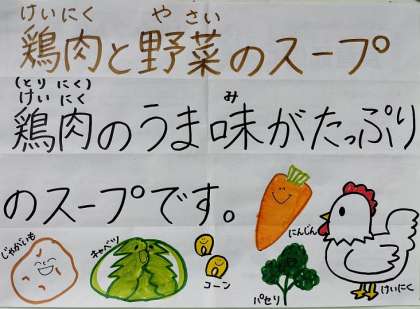 けいにく　や　さい
鶏肉と野菜のスープ
(とり にく)
けい にく　み
鶏肉のうま味がたっぷり
のスープです。
じゃがいも
キャベツ
コーン
にんじん
パセリ
けいにく